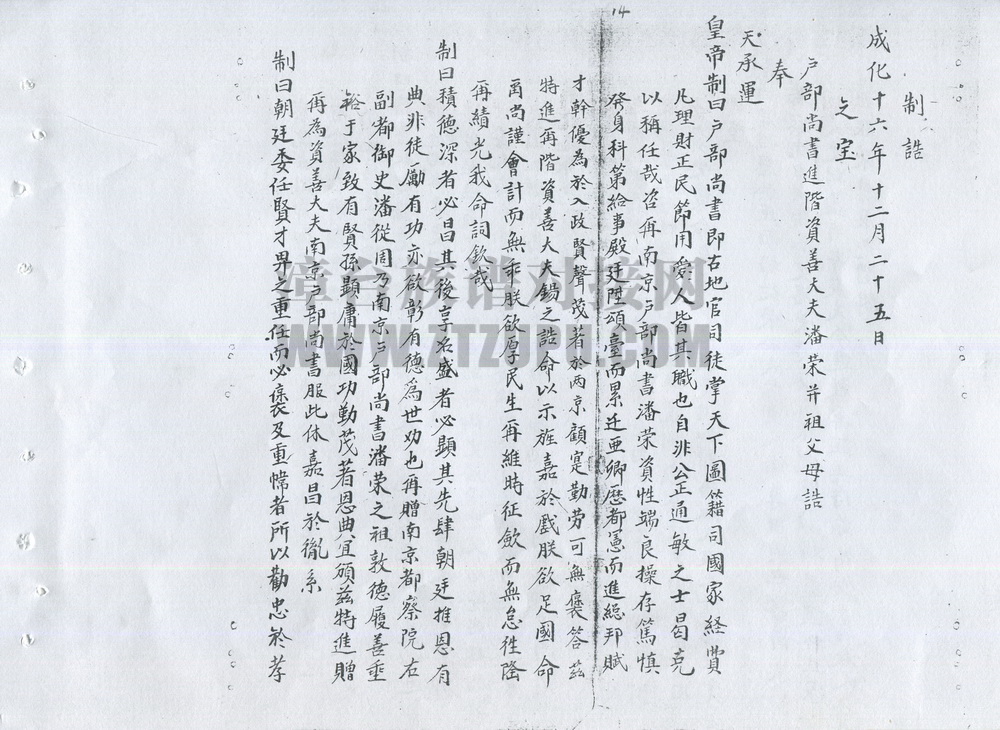 14
制誥
成化十六年十二月二十五日
之宝
户部尚書進階資善大夫潘榮并祖父母誥
奉
天承運
皇帝制曰户部尚書即古地官司徒掌天下圖籍司國家經費
凡理財正民節用愛人皆其職也自非公正通敏之士曷克
以稱任哉咨再南京户部尚書潘荣資性端良操存篤慎
發身科第給事殿廷陞頌臺而累迁亜卿歷都憲而進緫邦賦
才幹優為於入政賢聲茂著於两京顧寔勤劳可無褒答茲
特進再階資善大夫錫之誥命以示旌嘉於戲朕欲足國命
再尚謹會計而無乖朕欲厚民生再維時征歛而無怠徃隆
再績光我命詞欽哉
制曰積德深者必昌其後享名盛者必顯其先肆朝廷推恩有
典非徒勵有功亦欲彰有德為世劝也再贈南京都察院右
副都御史潘從周乃南京户部尚書潘荣之祖敦德履善垂
裕于家致有賢孫顯庸於國功勤茂著恩典宜頒茲特進贈
再為資善大夫南京户部尚書服此休嘉昌於胤系
制曰朝廷委任賢才畀之重任而必褒及重幃者所以勸忠於孝
章台族谱对接网
WWW.ZTZUPU.COM